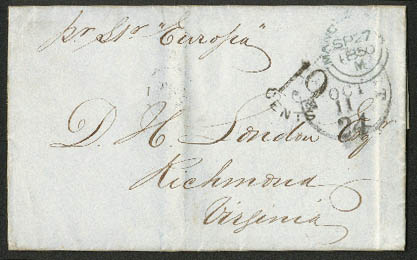 pr Str "Europa"
SP 27
1850
M
10
CENTS
OCT
11
24
D. H. London Esq
Richmond
Virginia